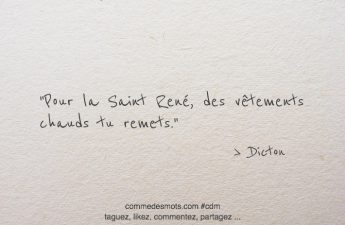 "Pour la Saint René, des vêtements
chauds tu remets."
> Dicton
commedesmots.com #cdm
taguez, likez, commentez, partagez ...